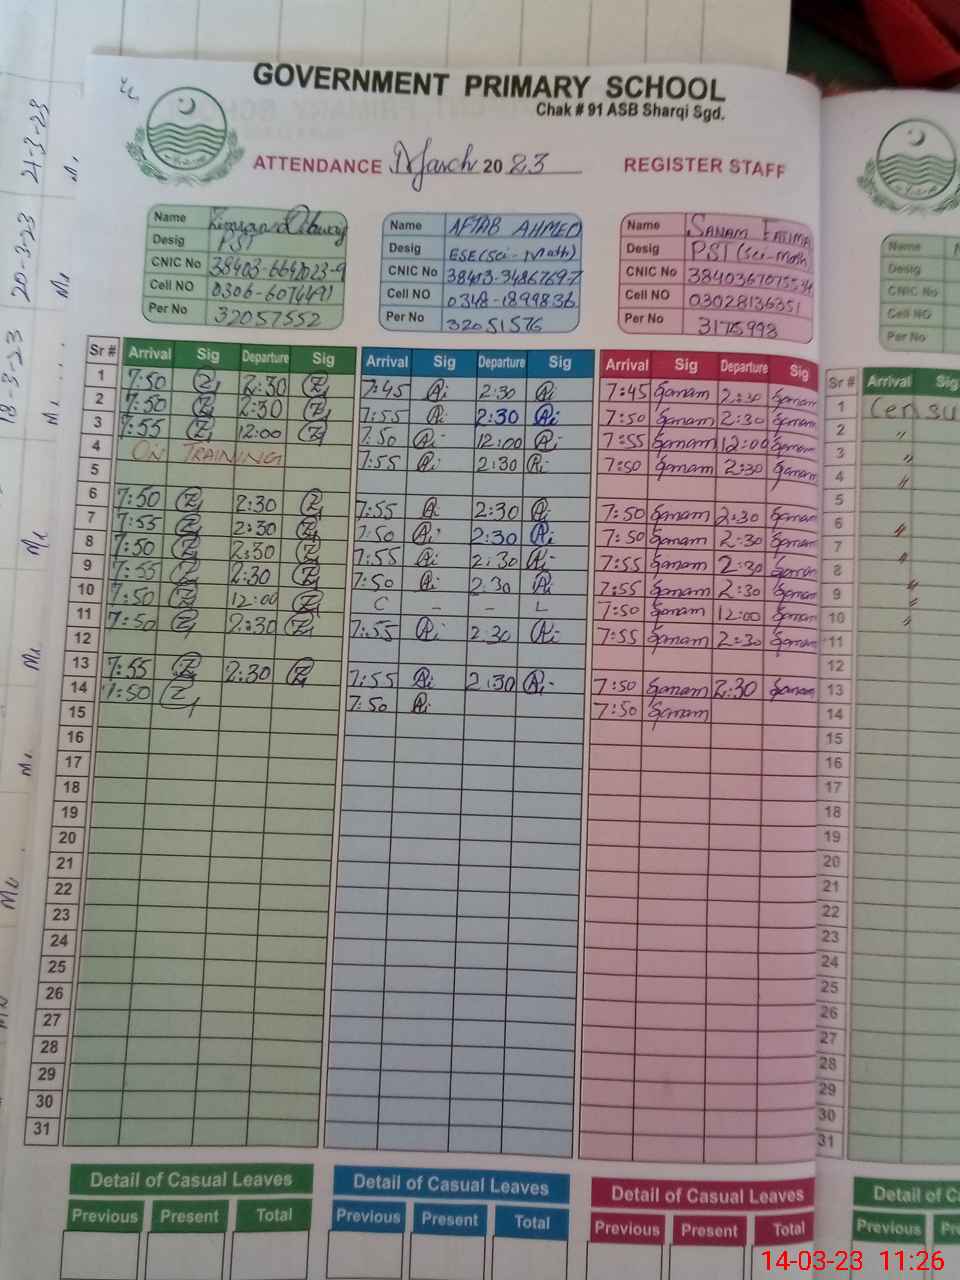 GOVERNMENT PRIMARY SCHOOL
Chak # 91 ASB Sharqi Sgd.
ATTENDANCE March 2023 REGISTER STAFF
Name
Desig PST
CNIC No
Cell NO
Per No 32057552
Name AFTAB AHMED
Desig ESE(Sci-Math)
CNIC No
Cell NO 0348-1899836
Per No 32051576
Name SANAM FATIMA
Desig PST (Sci-Math)
CNIC No
Cell NO 03028136351
Per No
Sr # Arrival Sig Departure Sig Arrival Sig Departure Sig Arrival Sig Departure Sig
1 7:50 2:30 7:45 2:30 7:45 Sanam 2:30 Sanam
2 7:50 2:30 7:55 2:30 7:50 Sanam 2:30 Sanam
3 7:55 12:00 7:50 12:00 7:55 Sanam 12:00 Sanam
4 ON TRAINING 7:55 2:30 7:50 Sanam 2:30 Sanam
5
6 7:50 2:30 7:55 2:30 7:50 Sanam 2:30 Sanam
7 7:55 2:30 7:50 2:30 7:50 Sanam 2:30 Sanam
8 7:50 2:30 7:55 2:30 7:55 Sanam 2:30 Sanam
9 7:55 2:30 7:50 2:30 7:55 Sanam 2:30 Sanam
10 7:50 12:00 C - - L 7:50 Sanam 12:00 Sanam
11 7:50 2:30 7:55 2:30 7:55 Sanam 2:30 Sanam
12
13 7:55 2:30 7:55 2:30 7:50 Sanam 2:30 Sanam
14 7:50 7:50 7:50 Sanam
15
16
17
18
19
20
21
22
23
24
25
26
27
28
29
30
31
Detail of Casual Leaves Detail of Casual Leaves Detail of Casual Leaves
Previous Present Total Previous Present Total Previous Present Total
Name
Desig
CNIC No
Cell NO
Per No
Sr # Arrival Sig
1
2 "
3 "
4 "
5
6 "
7 "
8
9 "
10 "
11
12
13
14
15
16
17
18
19
20
21
22
23
24
25
26
27
28
29
30
31
Detail of C
Previous
18-3-23 20-3-23 21-3-23
14-03-23 11:26